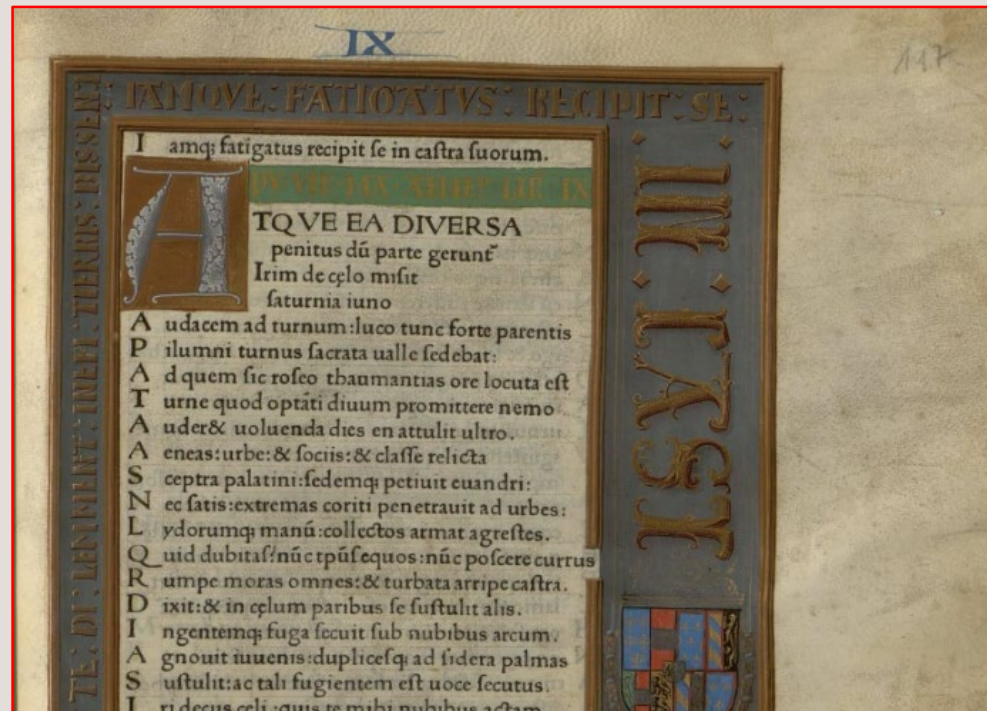 IX
117
IAMQVE: FATIGATVS: RECIPIT: SE:
IN · CAST
I amq; fatigatus recipit se in castra suorum.
LIB IX
ATQVE EA DIVERSA
penitus dū parte gerunt̄
Irim de cęlo misit
saturnia iuno
A udacem ad turnum: luco tunc forte parentis
P ilumni turnus sacrata ualle sedebat:
A d quem sic roseo thaumantias ore locuta est
T urne quod optāti diuum promittere nemo
A uder& uoluenda dies en attulit ultro.
A eneas: urbe: & sociis: & classe relicta
S ceptra palatini: sedemq; petiuit euandri:
N ec satis: extremas coriti penetrauit ad urbes:
L ydorumq; manū: collectos armat agrestes.
Q uid dubitas? nūc tp̄us equos: nūc poscere currus
R umpe moras omnes: & turbata arripe castra.
D ixit: & in cęlum paribus se sustulit alis.
I ngentemq; fuga secuit sub nubibus arcum.
A gnouit iuuenis: duplicesq; ad sidera palmas
S ustulit: ac tali fugientem est uoce secutus.
I ri decus celi: quis te mihi nubibus actam